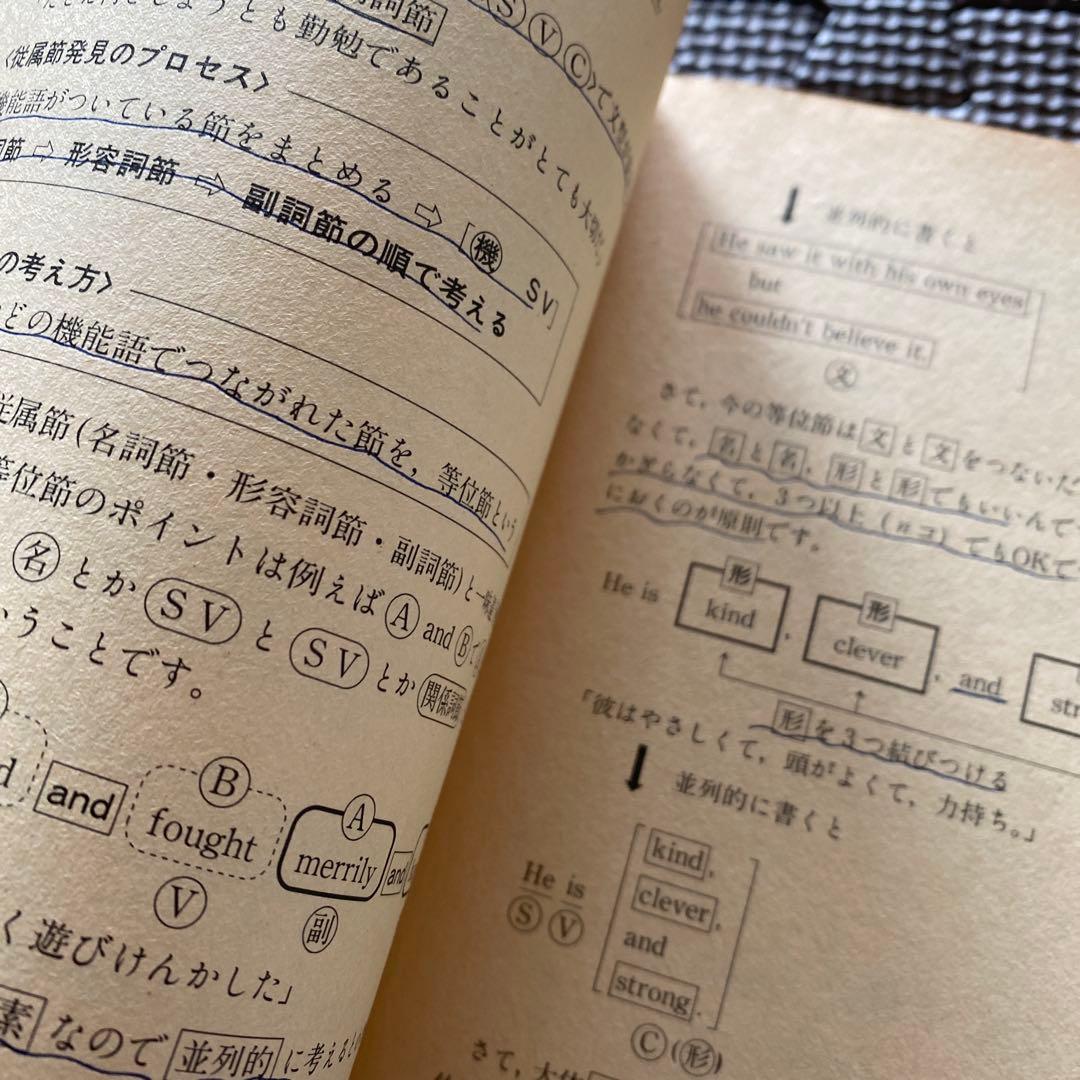 詞節
Ⓢ Ⓥ Ⓒ〉で文
とも勤勉であることがとても大切
〈従属節発見のプロセス〉
機能語がついている節をまとめる ⇨ [機 SV]
詞節 ⇨ 形容詞節 ⇨ 副詞節の順で考える
の考え方〉
どの機能語でつながれた節を，等位節という
従属節(名詞節・形容詞節・副詞節)と
等位節のポイントは例えばⒶ and Ⓑ
名とか SV と SV とか 関係詞節
いうことです。
and
Ⓑ
fought
Ⓥ
Ⓐ
merrily
副
and
く遊びけんかした」
素 なので 並列的 に考えると
並列的に書くと
He saw it with his own eyes
but
he couldn't believe it.
文
さて，今の等位節は 文 と 文 をつないだ
なくて，名 と 名，形 と 形 でもいいんで
かぎらなくて，3つ以上（nコ）でもOKで
におくのが原則です。
形
形
He is kind, clever, and str
形 を3つ結びつける
「彼はやさしくて，頭がよくて，力持ち。」
並列的に書くと
He is
Ⓢ Ⓥ
kind,
clever,
and
strong.
Ⓒ(形)
さて，大体